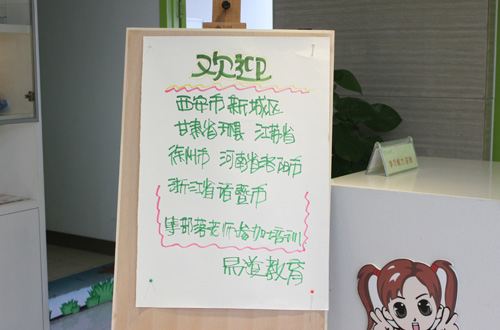 欢迎
西安市新城区
甘肃省环县 江苏省
徐州市 河南省洛阳市
浙江省诸暨市
部落老师参加培训
昂道教育